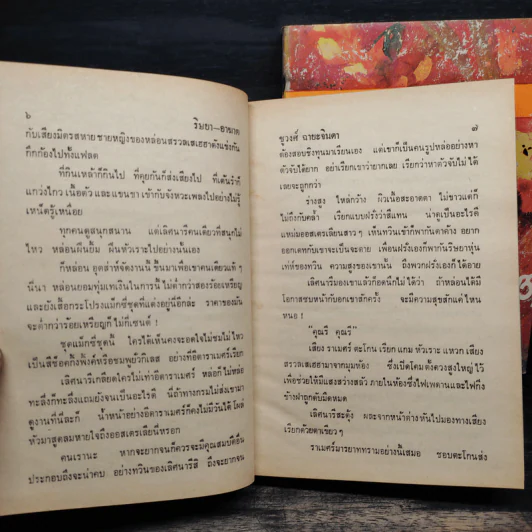 ๖ ริษยา-อาฆาต
กับเสียงมิตรสหายชายหญิงของหล่อนสรวลเสเฮฮาดังแข่งกัน
กึกก้องไปทั้งแฟลต
ที่กินเหล้าก็กินไป ที่คุยกันก็ส่งเสียงไป ที่เต้นรำก็
แกว่งไกวเนื้อตัว และแขนขา เข้ากับจังหวะเพลงไปอย่างไม่รู้
เหน็ดรู้เหนื่อย
ทุกคนดูสนุกสนาน แต่เลิศนารีคนเดียวที่สนุกไม่
ไหว หล่อนฝืนยิ้ม ฝืนหัวเราะไปอย่างนั้นเอง
ก็หล่อน อุตส่าห์จัดงานนี้ ขึ้นมาเพื่อเขาคนเดียวแท้ ๆ
นี่นา หล่อนยอมทุ่มเทเงินในการนี้ ไม่ต่ำกว่าสองร้อยเหรียญ
และยังเสื้อกระโปรงแม็กซี่ชุดที่แต่งอยู่นี่อีกล่ะ ราคาของมัน
จะต่ำกว่าร้อยเหรียญก็ไม่กี่เซนต์ !
ชุดแม็กซี่ชุดนี้ ใครได้เห็นคงจะอดใจไม่ชมไม่ไหว
เป็นสีช็อคกิ้งพิ้งค์หรือชมพูยั่วกิเลส อย่างที่อีตาราเมศร์เรียก
เลิศนารีเกลียดใครไม่เท่าอีตาราเมศร์ หล่อก็ไม่หล่อ
ทะลึ่งก็ทะลึ่งแถมยังจนเป็นอะไรดี นี่ถ้าทางกรมไม่ส่งเขามา
ดูงานที่นี่ละก็ น้ำหน้าอย่างอีตาราเมศร์ก็คงไม่มีวันได้ โผล่
หัวมาสูดลมหายใจถึงออสเตรเลียนี่หรอก
คนเรานะ หากจะยากจนก็ควรจะมีคุณสมบัติอื่น
ประกอบถึงจะน่าคบ อย่างทวินของเลิศนารีสิ ถึงจะยากจน
ชูวงศ์ ฉายะจินดา ๗
ต้องสอบชิงทุนมาเรียนเอง แต่เขาก็เป็นคนรูปหล่ออย่างหา
ตัวจับได้ยาก อย่าเรียกเขาว่ายากเลย เรียกว่าหาตัวจับไม่ได้
เลยจะถูกกว่า
ร่างสูง ไหล่กว้าง ผิวเนื้อสะอาดตา ไม่ขาวแต่ก็
ไม่ถึงกับคล้ำ เรียกแบบฝรั่งว่าสีแทน น่าดูเป็นอะไรดี
แหม่มออสเตรเลียนสาว ๆ เห็นทวินเข้าก็พากันตาค้าง อยาก
ออกเดทกับเขาจะเป็นจะตาย เพื่อนฝรั่งเองก็พากันริษยาหุ่น
เท่ห์ของทวิน ความสูงของเขานั้น ถึงพวกฝรั่งเองก็ได้อาย
เลิศนารีมองเขาแล้วก็อดนึกไม่ได้ว่า ถ้าหล่อนได้มี
โอกาสซบหน้ากับอกเขาสักครั้ง จะมีความสุขสักแค่ไหน
หนอ !
"คุณรี่ คุณรี่"
เสียง ราเมศร์ ตะโกน เรียก แกม หัวเราะ แหวก เสียง
สรวลเสเฮฮามาจากมุมห้อง ซึ่งเปิดโคมตั้งดวงสูงใหญ่ไว้
เพื่อช่วยให้มีแสงสว่างสลัว ภายในห้องซึ่งไฟเพดานและไฟกิ่ง
ข้างฝาถูกดับมืดหมด
เลิศนารีสะดุ้ง ผละจากหน้าต่าง หันไปมองทางเสียง
เรียกด้วยตาเขียว ๆ
ราเมศร์มารยาททรามอย่างนี้เสมอ ชอบตะโกนส่ง